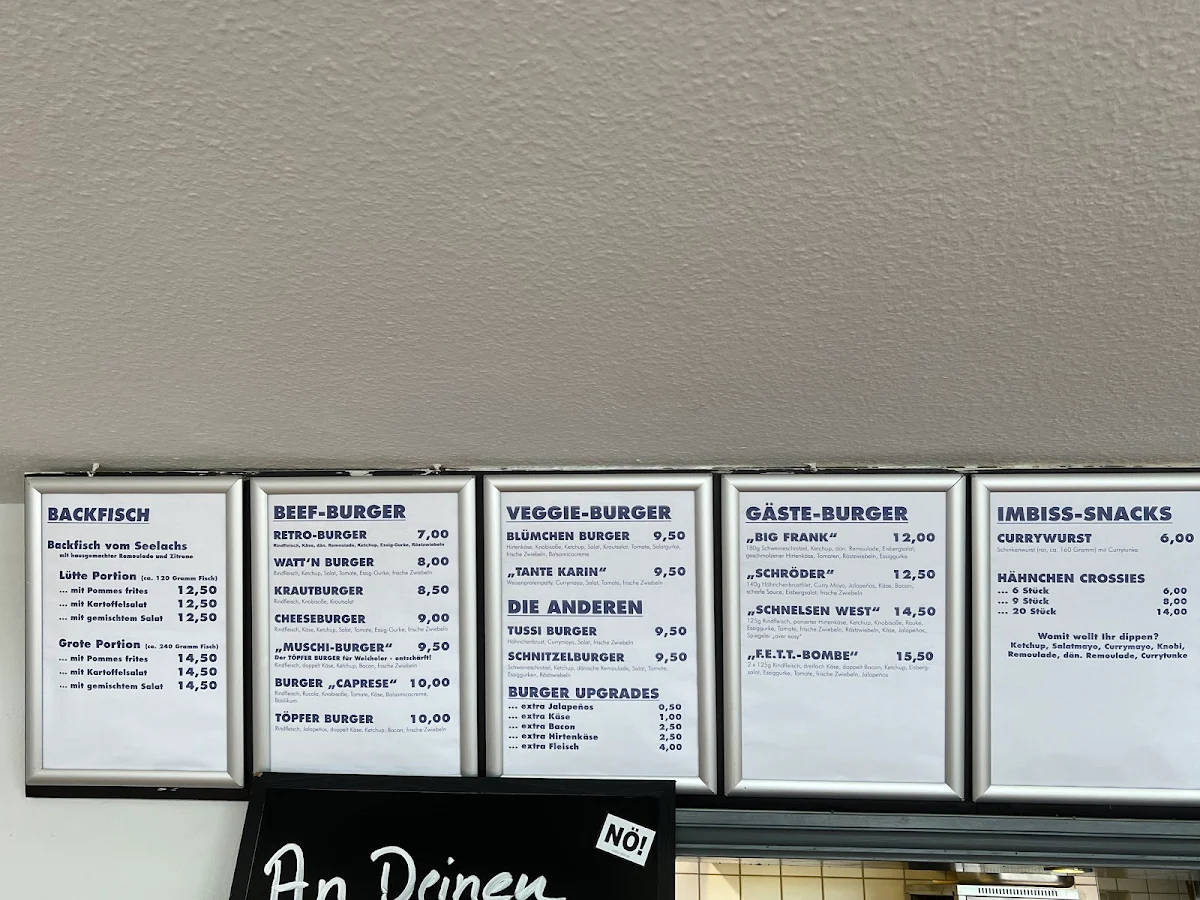 BACKFISCH
Backfisch vom Seelachs
mit hausgemachter Remoulade und Zitrone
Lütte Portion (ca. 120 Gramm Fisch)
... mit Pommes frites 12,50
... mit Kartoffelsalat 12,50
... mit gemischtem Salat 12,50
Grote Portion (ca. 240 Gramm Fisch)
... mit Pommes frites 14,50
... mit Kartoffelsalat 14,50
... mit gemischtem Salat 14,50
BEEF-BURGER
RETRO-BURGER 7,00
Rindfleisch, Käse, dän. Remoulade, Ketchup, Essig-Gurke, Röstzwiebeln
WATT'N BURGER 8,00
Rindfleisch, Ketchup, Salat, Tomate, Essig-Gurke, frische Zwiebeln
KRAUTBURGER 8,50
Rindfleisch, Knobisoße, Krautsalat
CHEESEBURGER 9,00
Rindfleisch, Käse, Ketchup, Salat, Tomate, Essig-Gurke, frische Zwiebeln
„MUSCHI-BURGER“ 9,50
Der TÖPFER BURGER für Weicheier - entschärft!
Rindfleisch, doppelt Käse, Ketchup, Bacon, frische Zwiebeln
BURGER „CAPRESE“ 10,00
Rindfleisch, Rucola, Knobisoße, Tomate, Käse, Balsamicocreme,
Basilikum
TÖPFER BURGER 10,00
Rindfleisch, Jalapeños, doppelt Käse, Ketchup, Bacon, frische Zwiebeln
VEGGIE-BURGER
BLÜMCHEN BURGER 9,50
Hirtenkäse, Knobisoße, Ketchup, Salat, Krautsalat, Tomate, Salatgurke,
frische Zwiebeln, Balsamicocreme
„TANTE KARIN“ 9,50
Weizenproteinpatty, Currymayo, Salat, Tomate, frische Zwiebeln
DIE ANDEREN
TUSSI BURGER 9,50
Hähnchenbrust, Currymayo, Salat, frische Zwiebeln
SCHNITZELBURGER 9,50
Schweineschnitzel, Ketchup, dänische Remoulade, Salat, Tomate,
Essiggurken, Röstzwiebeln
BURGER UPGRADES
... extra Jalapeños 0,50
... extra Käse 1,00
... extra Bacon 2,50
... extra Hirtenkäse 2,50
... extra Fleisch 4,00
GÄSTE-BURGER
„BIG FRANK“ 12,00
180g Schweineschnitzel, Ketchup, dän. Remoulade, Eisbergsalat,
geschmolzener Hirtenkäse, Tomaten, Röstzwiebeln, Essiggurke
„SCHRÖDER“ 12,50
140g Hähnchenbrustfilet, Curry-Mayo, Jalapeños, Käse, Bacon,
scharfe Sauce, Eisbergsalat, frische Zwiebeln
„SCHNELSEN WEST“ 14,50
125g Rindfleisch, panierter Hirtenkäse, Ketchup, Knobisoße, Rauke,
Essiggurke, Tomate, frische Zwiebeln, Röstzwiebeln, Käse, Jalapeños,
Spiegelei „over easy“
„F.E.T.T.-BOMBE“ 15,50
2 x 125g Rindfleisch, dreifach Käse, doppelt Bacon, Ketchup, Eisberg-
salat, Essiggurke, Tomate, frische Zwiebeln, Jalapeños
IMBISS-SNACKS
CURRYWURST 6,00
Schinkenwurst (rot, ca. 160 Gramm) mit Currytunke
HÄHNCHEN CROSSIES
... 6 Stück 6,00
... 9 Stück 8,00
... 20 Stück 14,00
Womit wollt Ihr dippen?
Ketchup, Salatmayo, Currymayo, Knobi,
Remoulade, dän. Remoulade, Currytunke
NÖ!
An Deinen